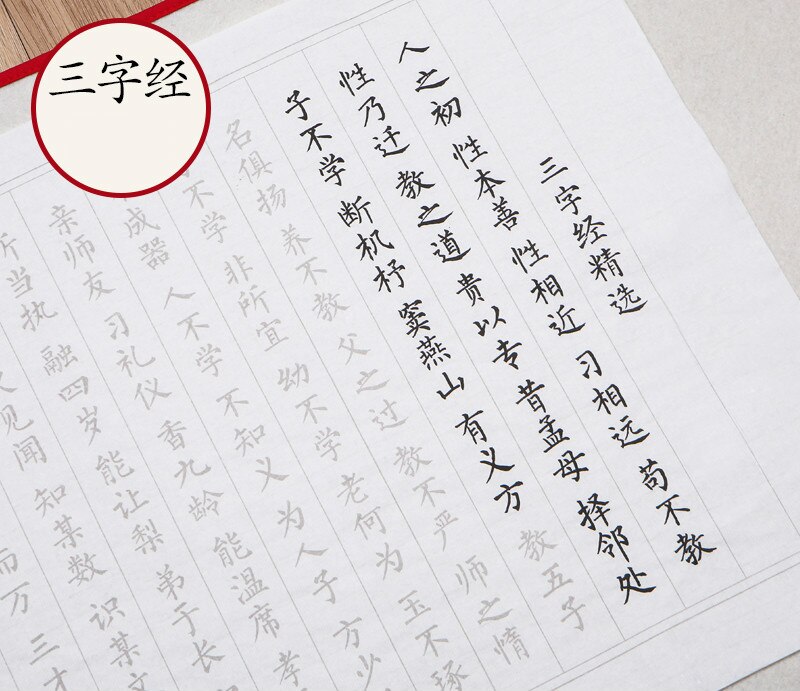 三字经
三字经精选
人之初 性本善 性相近 习相远 苟不教
性乃迁 教之道 贵以专 昔孟母 择邻处
子不学 断机杼 窦燕山 有义方 教五子
名俱扬 养不教 父之过 教不严 师之惰
不学 非所宜 幼不学 老何为 玉不琢
成器 人不学 不知义 为人子 方少
亲师友 习礼仪 香九龄 能温席 孝
所当执 融四岁 能让梨 弟于长
见闻 知某数 识某文
而万 三才